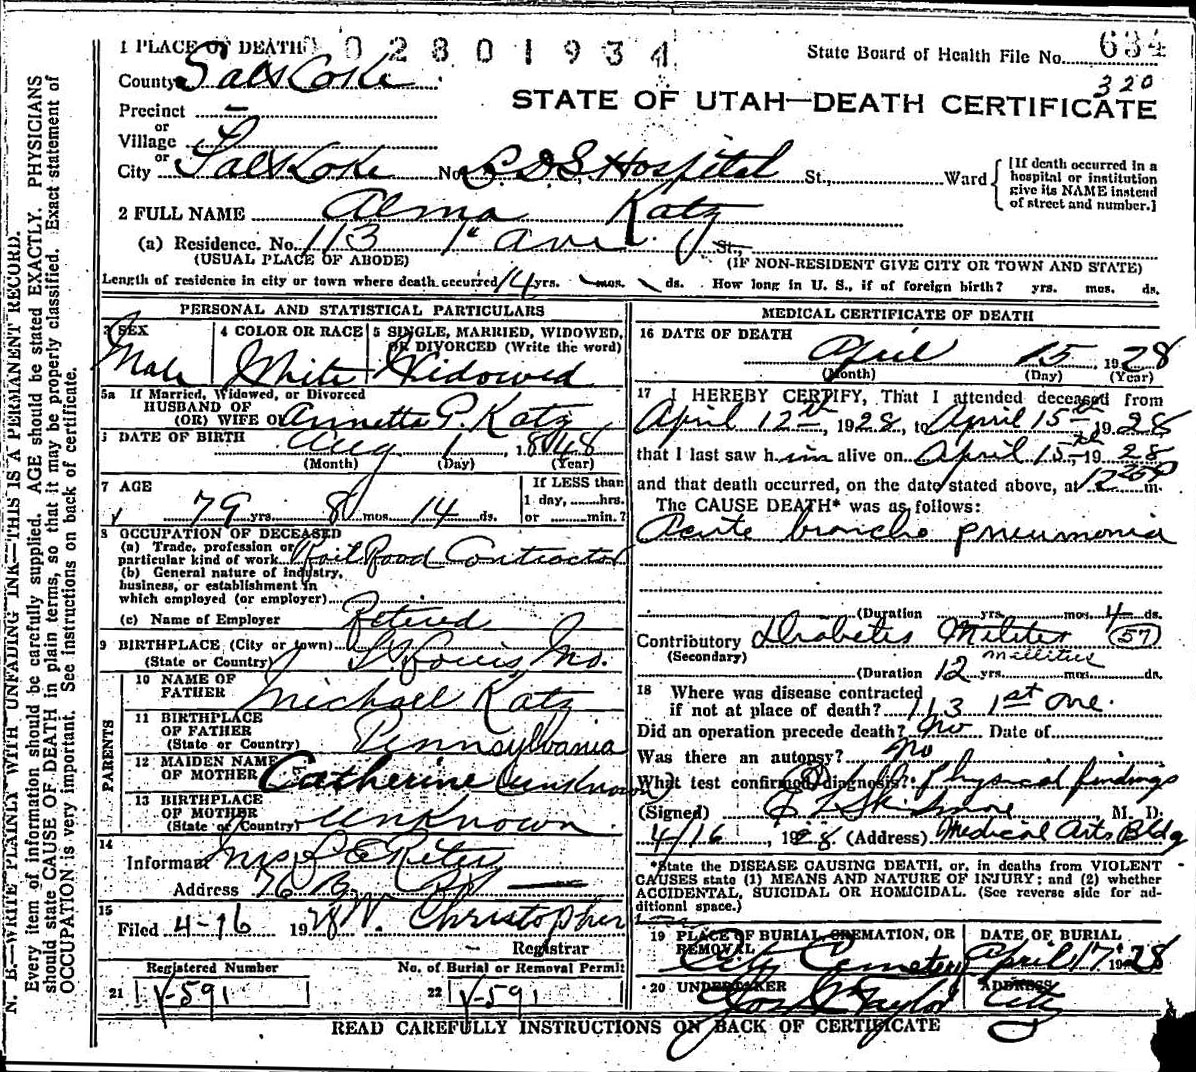 N. B.—WRITE PLAINLY WITH UNFADING INK—THIS IS A PERMANENT RECORD.
Every item of information should be carefully supplied. AGE should be stated EXACTLY. PHYSICIANS
should state CAUSE OF DEATH in plain terms, so that it may be properly classified. Exact statement of
OCCUPATION is very important. See instructions on back of certificate.
1 PLACE OF DEATH 0 2 8 0 1 9 3 4
State Board of Health File No. 634
320
County Salt Lake
STATE OF UTAH—DEATH CERTIFICATE
Precinct —
or
Village
or
City Salt Lake No. L D S Hospital St., Ward
[If death occurred in a
hospital or institution
give its NAME instead
of street and number.]
2 FULL NAME Alma Katz
(a) Residence. No. 113 1st Ave. St.,
(USUAL PLACE OF ABODE) (IF NON-RESIDENT GIVE CITY OR TOWN AND STATE)
Length of residence in city or town where death occurred 14 yrs. — mos. ds. How long in U. S., if of foreign birth? yrs. mos. ds.
PERSONAL AND STATISTICAL PARTICULARS
3 SEX 4 COLOR OR RACE 5 SINGLE, MARRIED, WIDOWED,
OR DIVORCED (Write the word)
Male White Widowed
5a If Married, Widowed, or Divorced
HUSBAND OF
(OR) WIFE OF Annetta P. Katz
6 DATE OF BIRTH Aug 1, 1848
(Month) (Day) (Year)
7 AGE If LESS than
1 day, hrs.
79 yrs. 8 mos. 14 ds. or min.?
8 OCCUPATION OF DECEASED
(a) Trade, profession or
particular kind of work Rail Road Contractor
(b) General nature of industry,
business, or establishment in
which employed (or employer)
(c) Name of Employer Retired
9 BIRTHPLACE (City or town)
(State or Country) St Louis, Mo.
PARENTS
10 NAME OF
FATHER Michael Katz
11 BIRTHPLACE
OF FATHER
(State or Country) Pennsylvania
12 MAIDEN NAME
OF MOTHER Catherine Unknown
13 BIRTHPLACE
OF MOTHER
(State or Country) Unknown
14
Informant Mrs
Address 76 B.
15
Filed 4-16 1928 W. Christopher
Registrar
Registered Number No. of Burial or Removal Permit
21 V-591 22 V-591
MEDICAL CERTIFICATE OF DEATH
16 DATE OF DEATH
April 15, 1928
(Month) (Day) (Year)
17 I HEREBY CERTIFY, That I attended deceased from
April 12th, 1928, to April 15th 1928
that I last saw him alive on April 15th, 1928
and that death occurred, on the date stated above, at 12 20 P m.
The CAUSE DEATH* was as follows:
Acute broncho pneumonia
(Duration yrs. mos. 4 ds.
Contributory Diabetis Militer (57)
(Secondary) Mellitus
(Duration 12 yrs. mos. ds.
18 Where was disease contracted
if not at place of death? 113 1st Ave.
Did an operation precede death? No Date of
Was there an autopsy? No
What test confirmed diagnosis? Physical findings
(Signed) Skidmore M. D.
4/16, 1928. (Address) Medical Arts Bldg
*State the DISEASE CAUSING DEATH, or, in deaths from VIOLENT
CAUSES state (1) MEANS AND NATURE OF INJURY; and (2) whether
ACCIDENTAL, SUICIDAL OR HOMICIDAL. (See reverse side for ad-
ditional space.)
19 PLACE OF BURIAL, CREMATION, OR
REMOVAL
City Cemetery
DATE OF BURIAL
April 17 1928
20 UNDERTAKER
Jos Taylor
ADDRESS
City
READ CAREFULLY INSTRUCTIONS ON BACK OF CERTIFICATE